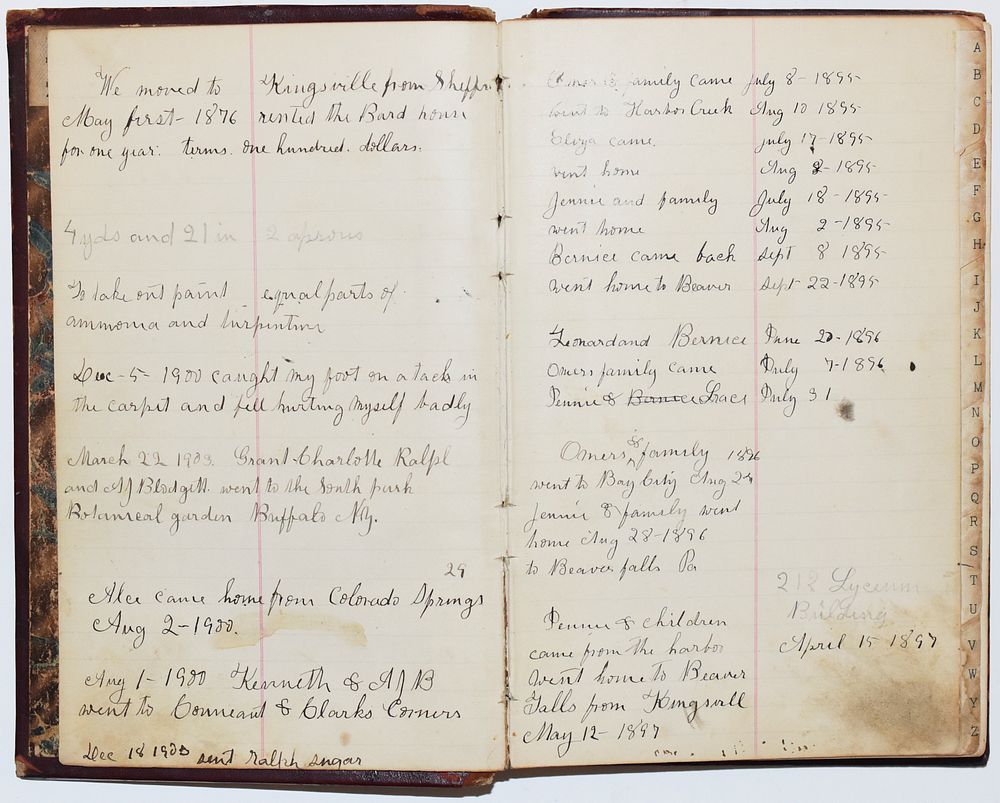 We moved to Kingsville from Sheffi
May first - 1876 rented the Bard house
for one year. terms. one hundred. dollars.
4 yds and 21 in 2 aprons
To take out paint equal parts of
ammonia and turpentine
Dec - 5 - 1900 caught my foot on a tack in
the carpet and fell hurting myself badly
March 22 1903. Grant Charlotte Ralpl
and AJ Blodgitt. went to the South park
Botanical garden Buffalo NY.
29
Alce came home from Colorado Springs
Aug 2 - 1900.
Aug 1 - 1900 Kenneth & AJB
went to Conneaut & Clarks Corners
Dec 18 1903 sent ralph sugar
Omer & family came July 8 - 1895
went to Harbor Creek Aug 10 1895
came july 17 - 1895
went home Aug 2 - 1895
Jennie and family July 18 - 1895
went home Aug 2 - 1895
Bernice came back Sept 8 1895
went home to Beaver Sept - 22 - 1895
Leonard and Bernice June 20 - 1896
Omers family came July 7 - 1896
Jennie & Bernice Grace July 31
Omers & family 1896
went to Bay City Aug 24
Jennie & family went
home Aug 28 - 1896
to Beaver falls Pa
212 Lyceum
Building
April 15 1897
Jennie & children
came from the harbor
went home to Beaver
Falls from Kingsvill
May 12 - 1897
A
B
C
D
E
F
G
H
I
J
K
L
M
N
O
P
Q
R
S
T
U
V
W
Y
Z